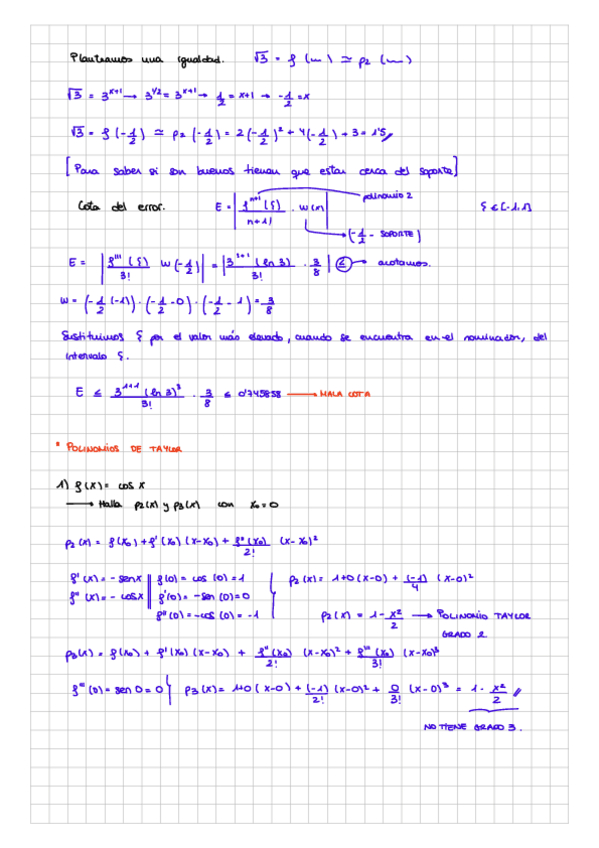 Planteamos una igualdad. √3 = f(m) ≃ p2(m)
√3 = 3^(x+1) → 3^(1/2) = 3^(x+1) → 1/2 = x+1 → -1/2 = x
√3 = f(-1/2) ≃ p2(-1/2) = 2(-1/2)² + 4(-1/2) + 3 = 1'5
[Para saber si son buenos tienen que estar cerca del soporte]
Cota del error. E = | f^(n+1)(ξ) / (n+1) · w(m) | polinomio 2 ξ ∈ [-1,1]
(-1/2 - SOPORTE)
E = | f'''(ξ) / 3! w(-1/2) | = | 3^(ξ+1) (ln 3) / 3! · 3/8 | ≤ → acotamos.
w = (-1/2 (-1)) · (-1/2 - 0) · (-1/2 - 1) = 3/8
Sustituimos ξ por el valor más elevado, cuando se encuentra en el nominador, del
intervalo ξ.
E ≤ 3^(1+1) (ln 3)³ / 3! · 3/8 ≤ 0'745858 → MALA COTA
* POLINOMIOS DE TAYLOR
1) f(x) = cos x
→ Halla p2(x) y p3(x) con x₀ = 0
p2(x) = f(x₀) + f'(x₀)(x-x₀) + f''(x₀)/2! (x-x₀)²
f'(x) = -sen x || f(0) = cos(0) = 1 p2(x) = 1+0(x-0) + (-1)/4 (x-0)²
f''(x) = -cos x || f'(0) = -sen(0) = 0
f''(0) = -cos(0) = -1 p2(x) = 1 - x²/2 → POLINOMIO TAYLOR
GRADO 2
p3(x) = f(x₀) + f'(x₀)(x-x₀) + f''(x₀)/2! (x-x₀)² + f'''(x₀)/3! (x-x₀)³
f'''(0) = sen 0 = 0 p3(x) = 1+0(x-0) + (-1)/2! (x-0)² + 0/3! (x-0)³ = 1 - x²/2
NO TIENE GRADO 3.